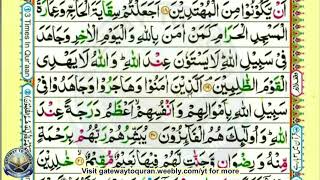 اَنْ يَّكُوْنُوْا مِنَ الْمُهْتَدِيْنَ ۝۱۸ اَجَعَلْتُمْ سِقَايَةَ الْحَآجِّ وَعِمَارَةَ
الْمَسْجِدِ الْحَرَامِ كَمَنْ اٰمَنَ بِاللّٰهِ وَالْيَوْمِ الْاٰخِرِ وَجَاهَدَ
فِيْ سَبِيْلِ اللّٰهِ ؕ لَا يَسْتَوٗنَ عِنْدَ اللّٰهِ ؕ وَاللّٰهُ لَا يَهْدِي
الْقَوْمَ الظّٰلِمِيْنَ ۝۱۹ اَلَّذِيْنَ اٰمَنُوْا وَهَاجَرُوْا وَجَاهَدُوْا فِيْ
سَبِيْلِ اللّٰهِ بِاَمْوَالِهِمْ وَاَنْفُسِهِمْ ۙ اَعْظَمُ دَرَجَةً عِنْدَ
اللّٰهِ ؕ وَاُولٰٓئِكَ هُمُ الْفَآئِزُوْنَ ۝۲۰ يُبَشِّرُهُمْ رَبُّهُمْ بِرَحْمَةٍ
مِّنْهُ وَرِضْوَانٍ وَّجَنّٰتٍ لَّهُمْ فِيْهَا نَعِيْمٌ مُّقِيْمٌ ۝۲۱ خٰلِدِيْنَ
3 Times In Qur'aan
Visit gatewaytoquran.weebly.com/yt for more